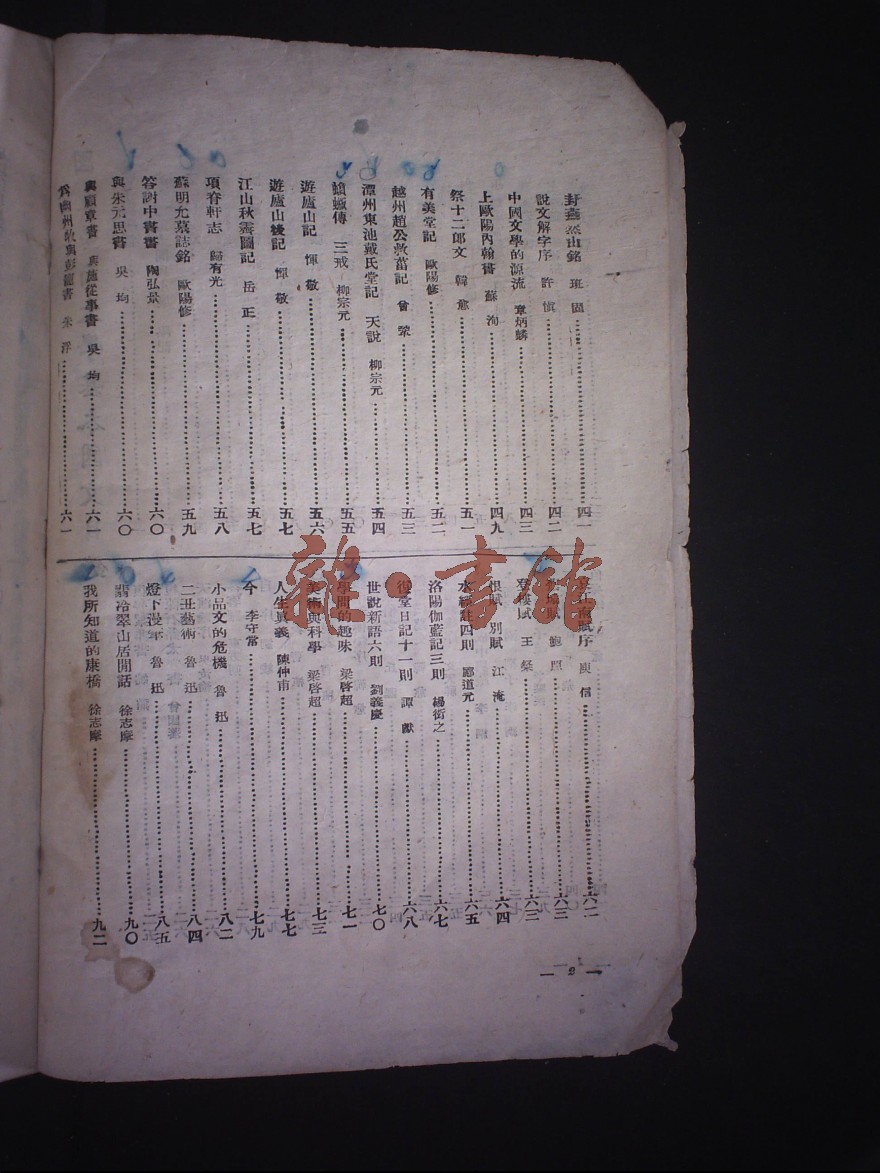 封燕然山銘 班固 四一
說文解字序 許愼 四二
中國文學的源流 章炳麟 四三
上歐陽內翰書 蘇洵 四九
祭十二郎文 韓愈 五一
有美堂記 歐陽修 五二
越州趙公救菑記 曾鞏 五三
潭州東池戴氏堂記 天說 柳宗元 五四
蝜蝂傳 三戒 柳宗元 五五
遊廬山記 惲敬 五六
遊廬山後記 惲敬 五七
江山秋霽圖記 岳正 五七
項脊軒志 歸有光 五八
蘇明允墓誌銘 歐陽修 五九
答謝中書書 陶弘景 六〇
與朱元思書 吳均 六〇
與顧章書 與施從事書 吳均 六一
爲幽州牧與彭寵書 朱浮 六一
哀江南賦序 庾信 六二
賦 鮑照 六三
登樓賦 王粲 六三
恨賦 別賦 江淹 六四
水經註四則 酈道元 六五
洛陽伽藍記三則 楊衒之 六七
復堂日記十一則 譚獻 六八
世說新語六則 劉義慶 七〇
學問的趣味 梁啓超 七一
美術與科學 梁啓超 七三
人生眞義 陳仲甫 七七
今 李守常 七九
小品文的危機 魯迅 八二
二丑藝術 魯迅 八四
燈下漫筆 魯迅 八五
翡冷翠山居閒話 徐志摩 九〇
我所知道的康橋 徐志摩 九二
— 2 —
雜·書館